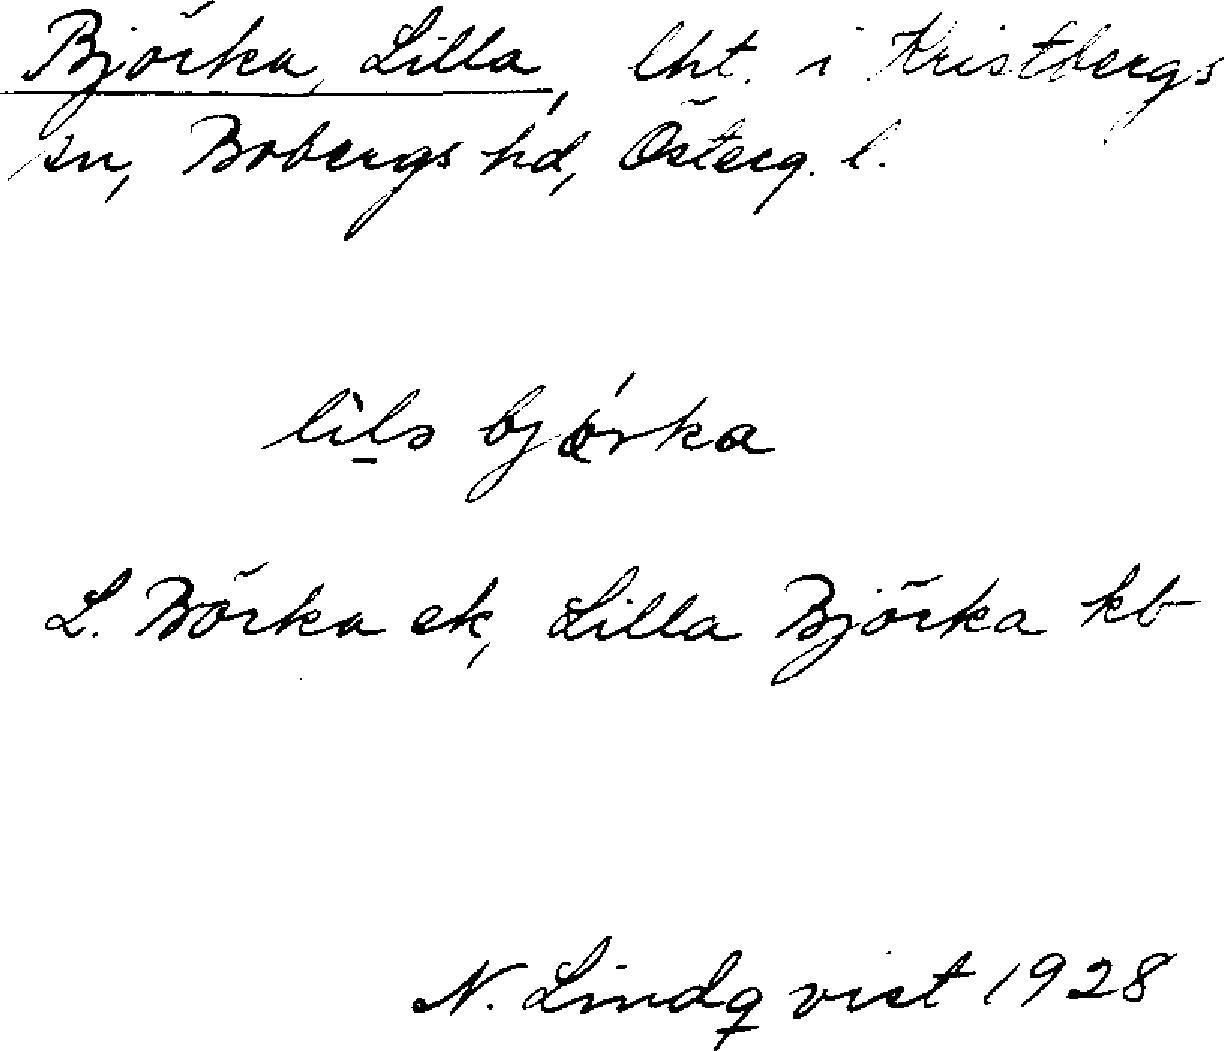 Björka, Lilla, lht. i Kristbergs
sn, Bobergs hd, Österg. l.
lìlə bjǿrka
L. Börka ek, Lilla Björka kb
N. Lindqvist 1928